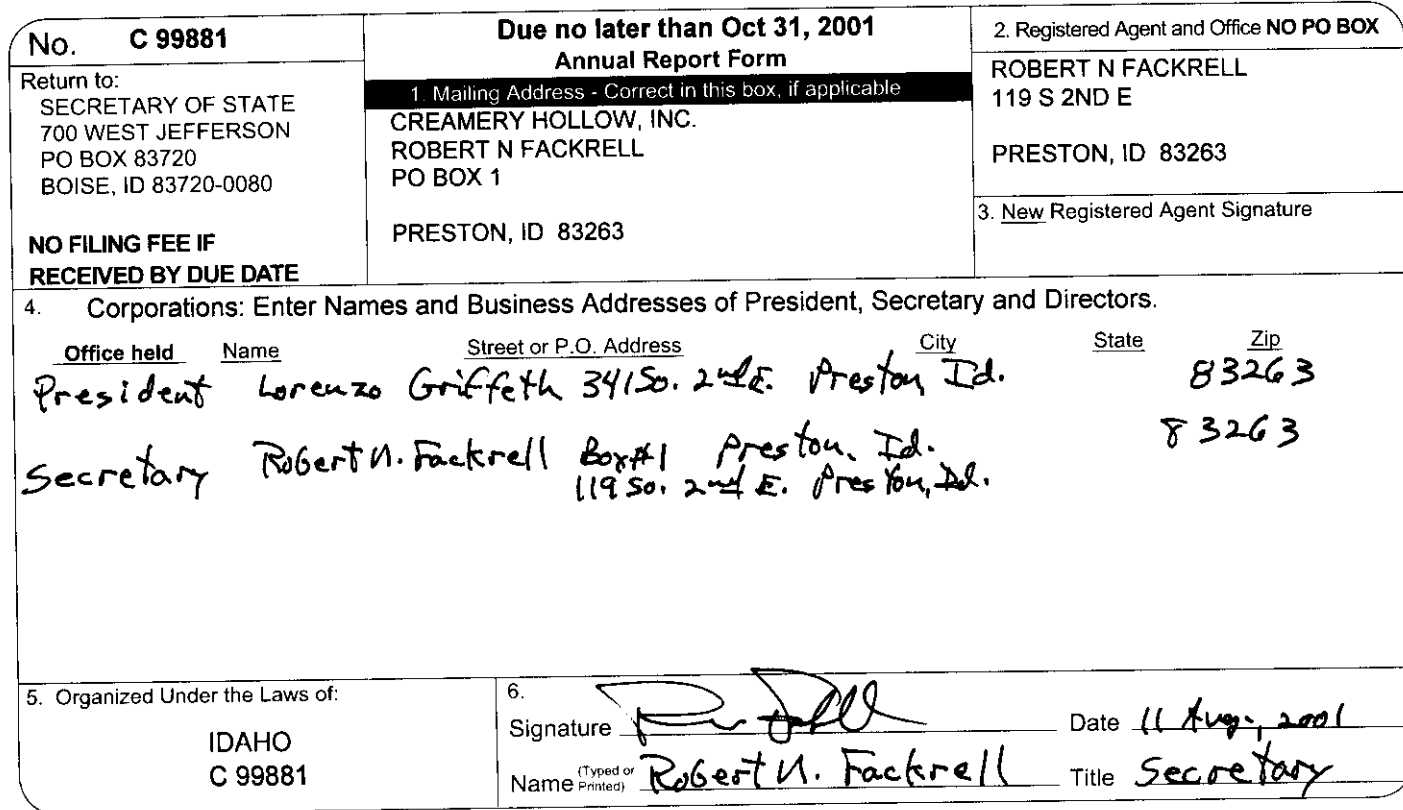 No. C 99881
Return to:
SECRETARY OF STATE
700 WEST JEFFERSON
PO BOX 83720
BOISE, ID 83720-0080
NO FILING FEE IF
RECEIVED BY DUE DATE
Due no later than Oct 31, 2001
Annual Report Form
1. Mailing Address - Correct in this box, if applicable
CREAMERY HOLLOW, INC.
ROBERT N FACKRELL
PO BOX 1
PRESTON, ID 83263
2. Registered Agent and Office NO PO BOX
ROBERT N FACKRELL
119 S 2ND E
PRESTON, ID 83263
3. New Registered Agent Signature
4. Corporations: Enter Names and Business Addresses of President, Secretary and Directors.
Office held Name Street or P.O. Address City State Zip
President Lorenzo Griffeth 341 So. 2nd E. Preston, Id. 83263
Secretary Robert N. Fackrell Box #1 Preston, Id. 83263
119 So. 2nd E. Preston, Id.
5. Organized Under the Laws of:
IDAHO
C 99881
6.
Signature Date 11 Aug., 2001
Name (Typed or Printed) Robert N. Fackrell Title Secretary